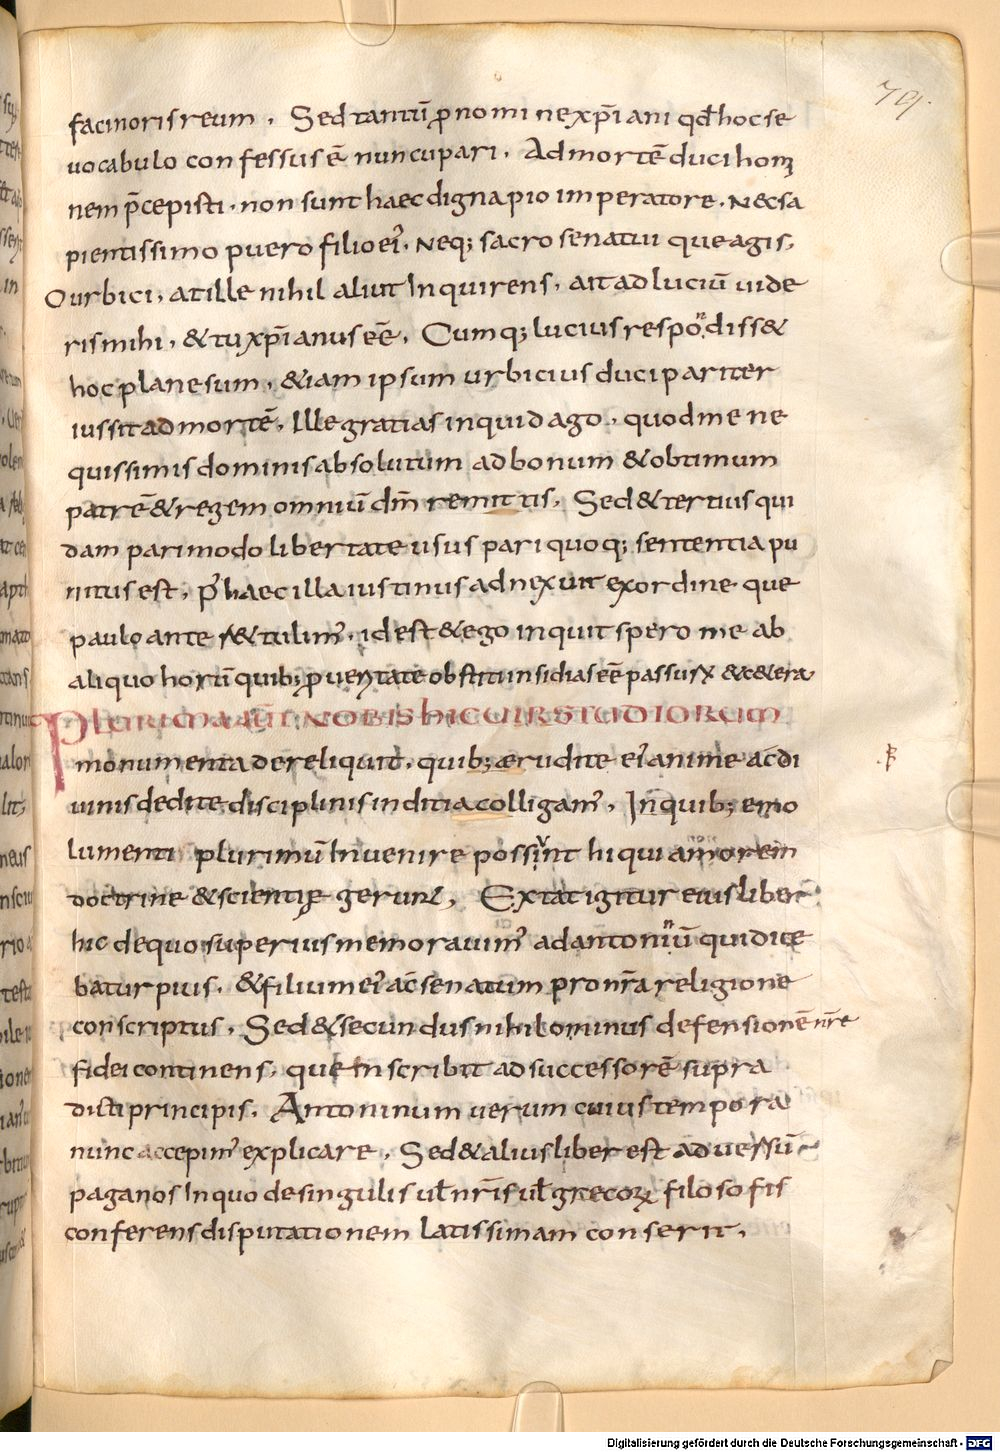 79.
facinoris reum. Sed tantū ꝓ nomine xp̄iani qđ hoc se
uocabulo confessus ē nuncupari. Ad mortē duci homi
nem p̄cepisti. non sunt haec digna pio imperatore. Nec sa
pientissimo puero filio ei'. Neq; sacro senatui que agis.
O urbici, at ille nihil aliut Inquirens, ait ad luciū uide
ris mihi, & tu xp̄ianus eē. Cumq; lucius respōdiss&
hoc plane sum, & iam ipsum urbicius duci pariter
iussit ad mortē. Ille gratias inquid ago, quod me ne
quissimis dominis absolutum ad bonum & obtimum
patrē & regem omniū dm̄ remittis. Sed & tertius qui
dam pari modo libertate usus pari quoq; sententia pu
nitus est. P' haec illa iustinus adnexuit ex ordine que
paulo ante r&tulim'. id est & ego inquit spero me ab
aliquo horū quib; ꝓ ueritate obstiti insidias eē passurū & c&era
Plurima aūt nobis hic uir studiorum
monumenta dereliquit. quib; ærudite ei' anime ac di
uinis dedite disciplinis inditia colligam'. In quib; emo
lumenti plurimū Inuenire possint hi qui amorem
doctrine & scientię gerunt. Extat igitur eius liber
hic de quo superius memorauim' ad antoniū qui dice
batur pius. & filium ei' ac senatum pro nr̄a religione
conscriptus. Sed & secundus nihilominus defensionē nr̄e
fidei continens. que Inscribit ad successorē supra
dicti principis. Antoninum uerum cuius tempora
nunc accepim' explicare. Sed & alius liber est aduersū
paganos In quo de singulis uł nr̄is uł grecoꝝ filosofis
conferens disputationem latissimam conserit.
Digitalisierung gefördert durch die Deutsche Forschungsgemeinschaft - DFG